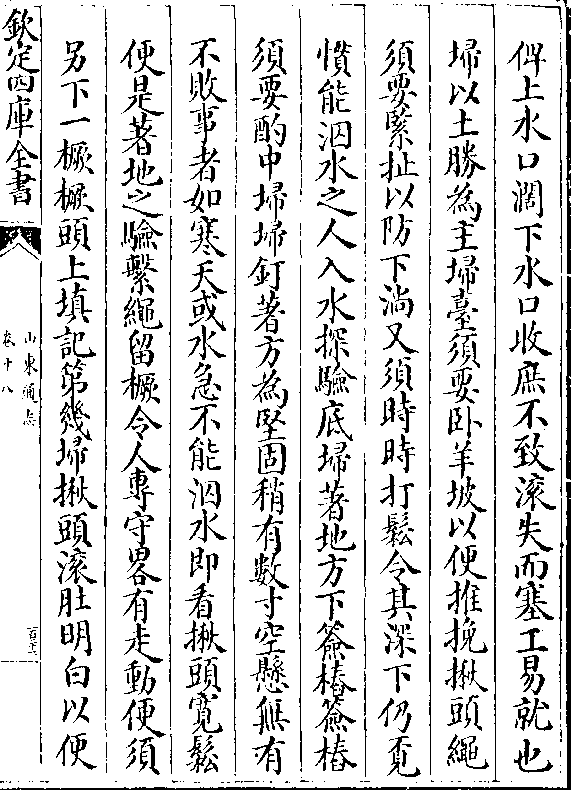 俾上水口濶下水口收庶不致滚失而塞工易就也
埽以土勝為主埽臺須要卧羊坡以便推挽揪頭繩
須要緊扯以防下淌又須時時打鬆令其深下仍覔
慣能泅水之人入水探驗底埽著地方下簽樁簽樁
須要酌中埽埽釘著方為堅固稍有數寸空懸無有
不敗事者如寒天或水急不能泅水即看揪頭寛鬆
便是著地之驗繫繩留橛令人專守畧有走動便須
另下一橛橛頭上填記第幾埽揪頭滚肚明白以便
欽定四庫全書
山東通志
卷十八